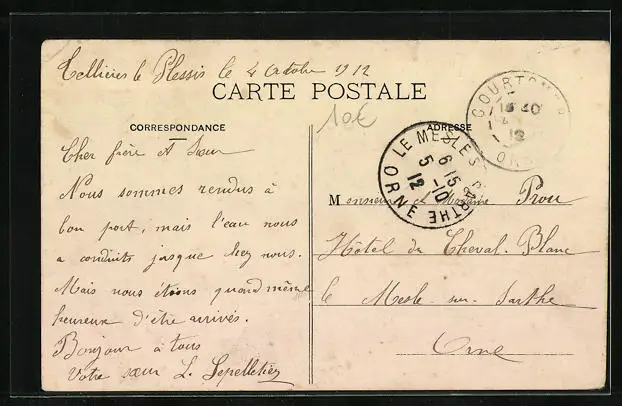 Tellières le Plessis le 4 Octobre 1912
CARTE POSTALE
10€
CORRESPONDANCE
ADRESSE
COURTOMER
15 40
12
ORNE
LE MESLE S SARTHE
6 15
5 -10
12
ORNE
Cher frère et Sœur
Nous sommes rendus à
bon port, mais l'eau nous
a conduits jusque chez nous.
Mais nous étions quand même
heureux d'être arrivés.
Bonjour à tous
Votre sœur L. Lepelletier
Monsieur et Madame Prou
Hôtel du Cheval-Blanc
le Mesle-sur-Sarthe
Orne